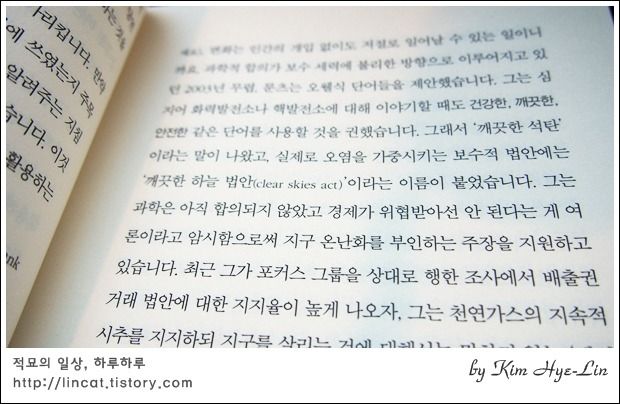 라리킵니다. 만약
에 쓰였는지 주목
알려주는 지침
습니다. 이것
활용하는
nk
세요), 변화는 인간의 개입 없이도 저절로 일어날 수 있는 일이니
까요. 과학적 합의가 보수 세력에 불리한 방향으로 이루어지고 있
던 2003년 무렵, 룬츠는 오웰식 단어들을 제안했습니다. 그는 심
지어 화력발전소나 핵발전소에 대해 이야기할 때도 건강한, 깨끗한,
안전한 같은 단어를 사용할 것을 권했습니다. 그래서 ‘깨끗한 석탄’
이라는 말이 나왔고, 실제로 오염을 가중시키는 보수적 법안에는
‘깨끗한 하늘 법안(clear skies act)’이라는 이름이 붙었습니다. 그는
과학은 아직 합의되지 않았고 경제가 위협받아선 안 된다는 게 여
론이라고 암시함으로써 지구 온난화를 부인하는 주장을 지원하고
있습니다. 최근 그가 포커스 그룹을 상대로 행한 조사에서 배출권
거래 법안에 대한 지지율이 높게 나오자, 그는 천연가스의 지속적
시추를 지지하되 지구를 살리는 것에 대해서는
적묘의 일상, 하루하루
http://lincat.tistory.com
by Kim Hye-Lin